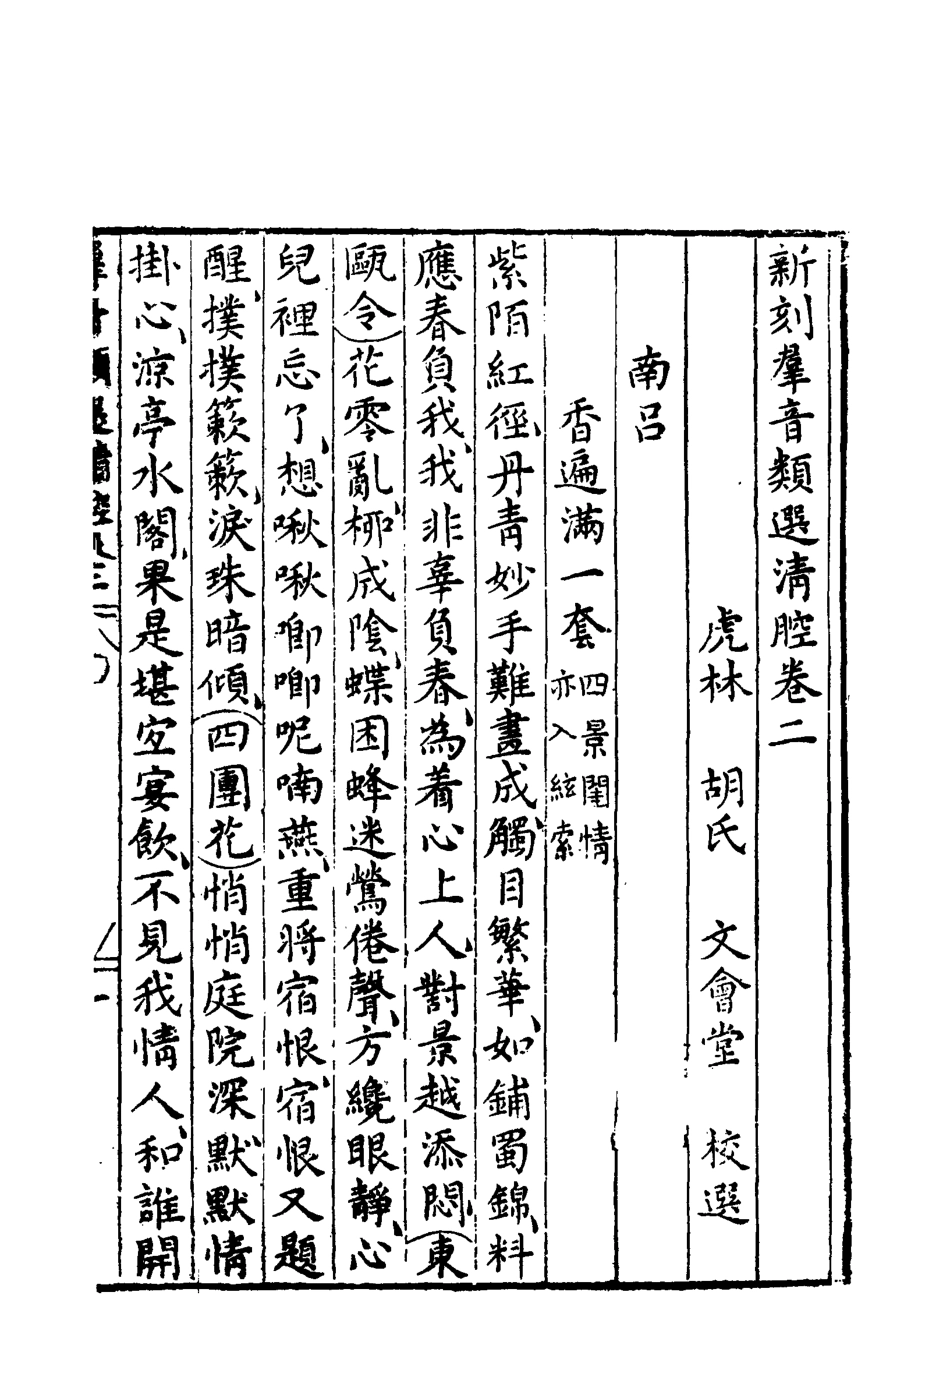 新刻羣音類選清腔卷二
虎林　胡氏　文會堂　校選
南呂
香遍滿一套 四景閨情 亦入絃索
紫陌紅徑、丹青妙手難畫成、觸目繁華、如鋪蜀錦、料
應春負我、我非辜負春、為着心上人、對景越添悶、（東
甌令）花零亂、栁成陰、蝶困蜂迷鶯倦聲、方纔眼靜、心
兒裡忘了、想啾啾唧唧呢喃燕、重將宿恨、宿恨又題
醒、撲撲簌簌、淚珠暗傾、（四團花）悄悄庭院深、默默情
掛心、涼亭水閣、果是堪宜宴飲、不見我情人、和誰開